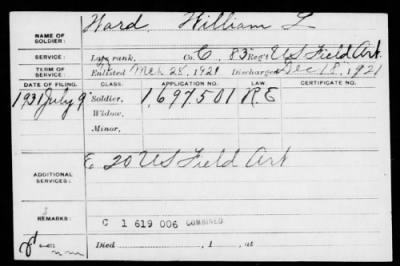 NAME OF SOLDIER: Ward, William L
SERVICE: Late rank, Co. C, 83 Reg't US Field Art.
TERM OF SERVICE: Enlisted Mch 28, 1921 Discharged Dec 18, 1921
DATE OF FILING. CLASS. APPLICATION NO. LAW. CERTIFICATE NO.
1931 July 9 Soldier, 1,697,501 R.E
Widow,
Minor,
ADDITIONAL SERVICES: E, 20 US Field Art
REMARKS: C 1 619 006 COMBINED
Died , 1 , at